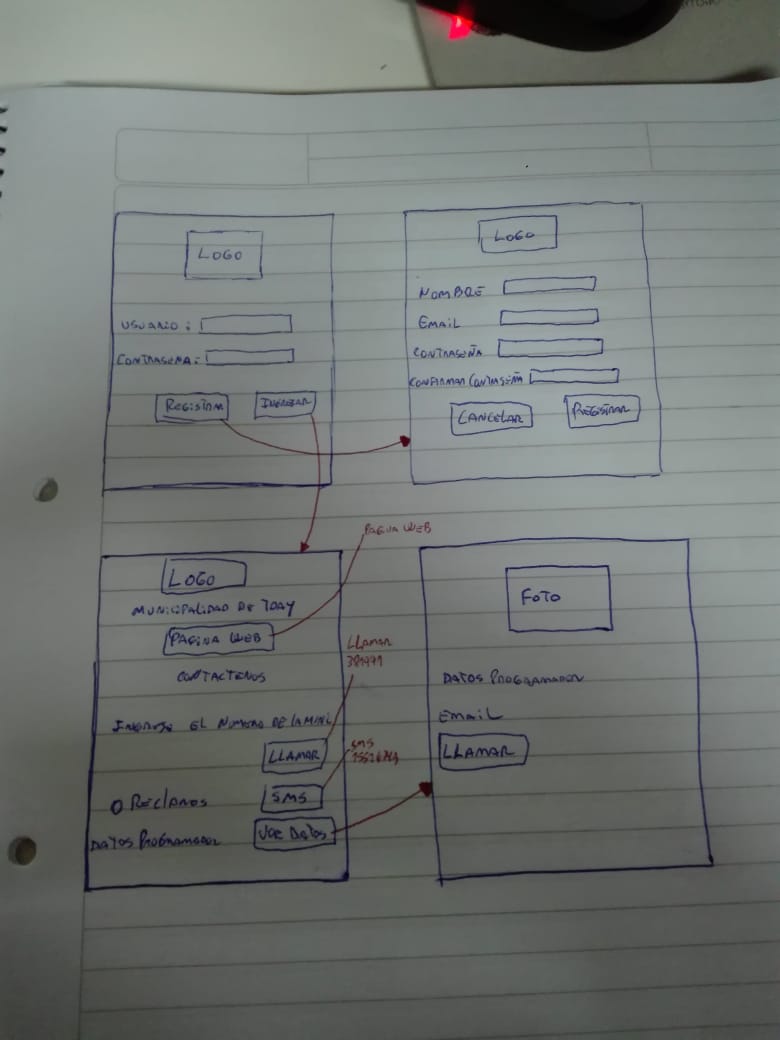 LOGO
USUARIO:
CONTRASEÑA:
REGISTRAR
INGRESAR
LOGO
NOMBRE
EMAIL
CONTRASEÑA
CONFIRMAR CONTRASEÑA
CANCELAR
REGISTRAR
PAGINA WEB
LOGO
MUNICIPALIDAD DE TDAY
PAGINA WEB
CONTACTENOS
LLAMAR
381971
INGRESE EL NUMERO DE LA MUNI
LLAMAR
SMS
O RECLAMOS
SMS
DATOS PROGRAMADOR
VER DATOS
FOTO
DATOS PROGRAMADOR
EMAIL
LLAMAR